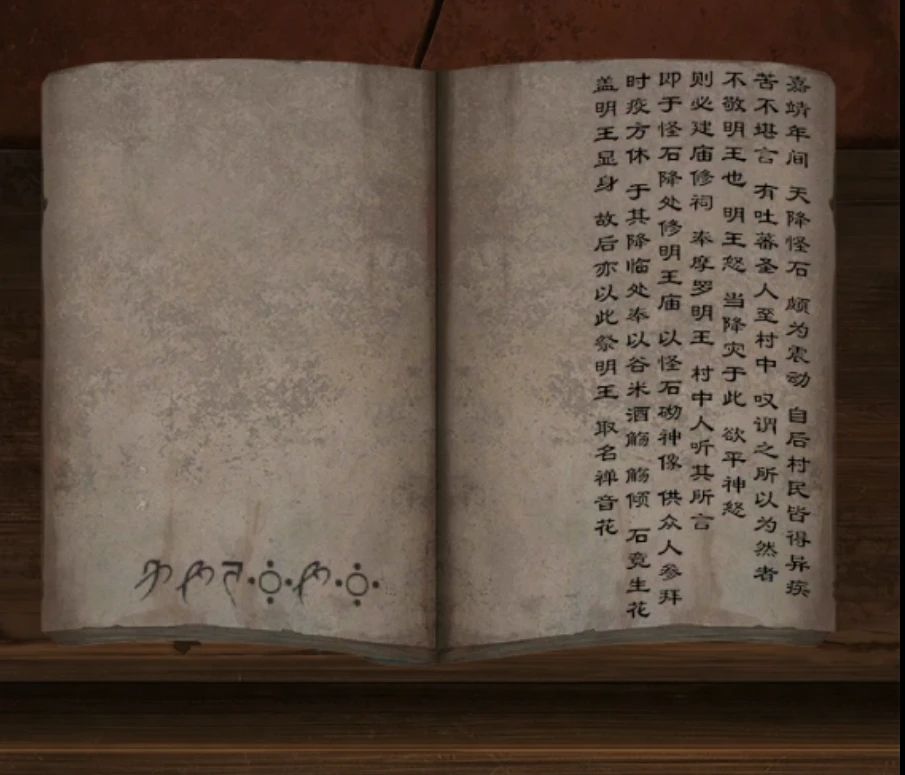 嘉靖年间 天降怪石 颇为震动 自后村民皆得异疾
苦不堪言 有吐蕃圣人至村中 叹谓之所以为然者
不敬明王也 明王怒 当降灾于此 欲平神怒
则必建庙修祠 奉摩罗明王 村中人听其所言
即于怪石降处修明王庙 以怪石砌神像 供众人参拜
时疫方休 于其降临处奉以谷米酒觞 觞倾 石竟生花
盖明王显身 故后亦以此祭明王 取名禅音花